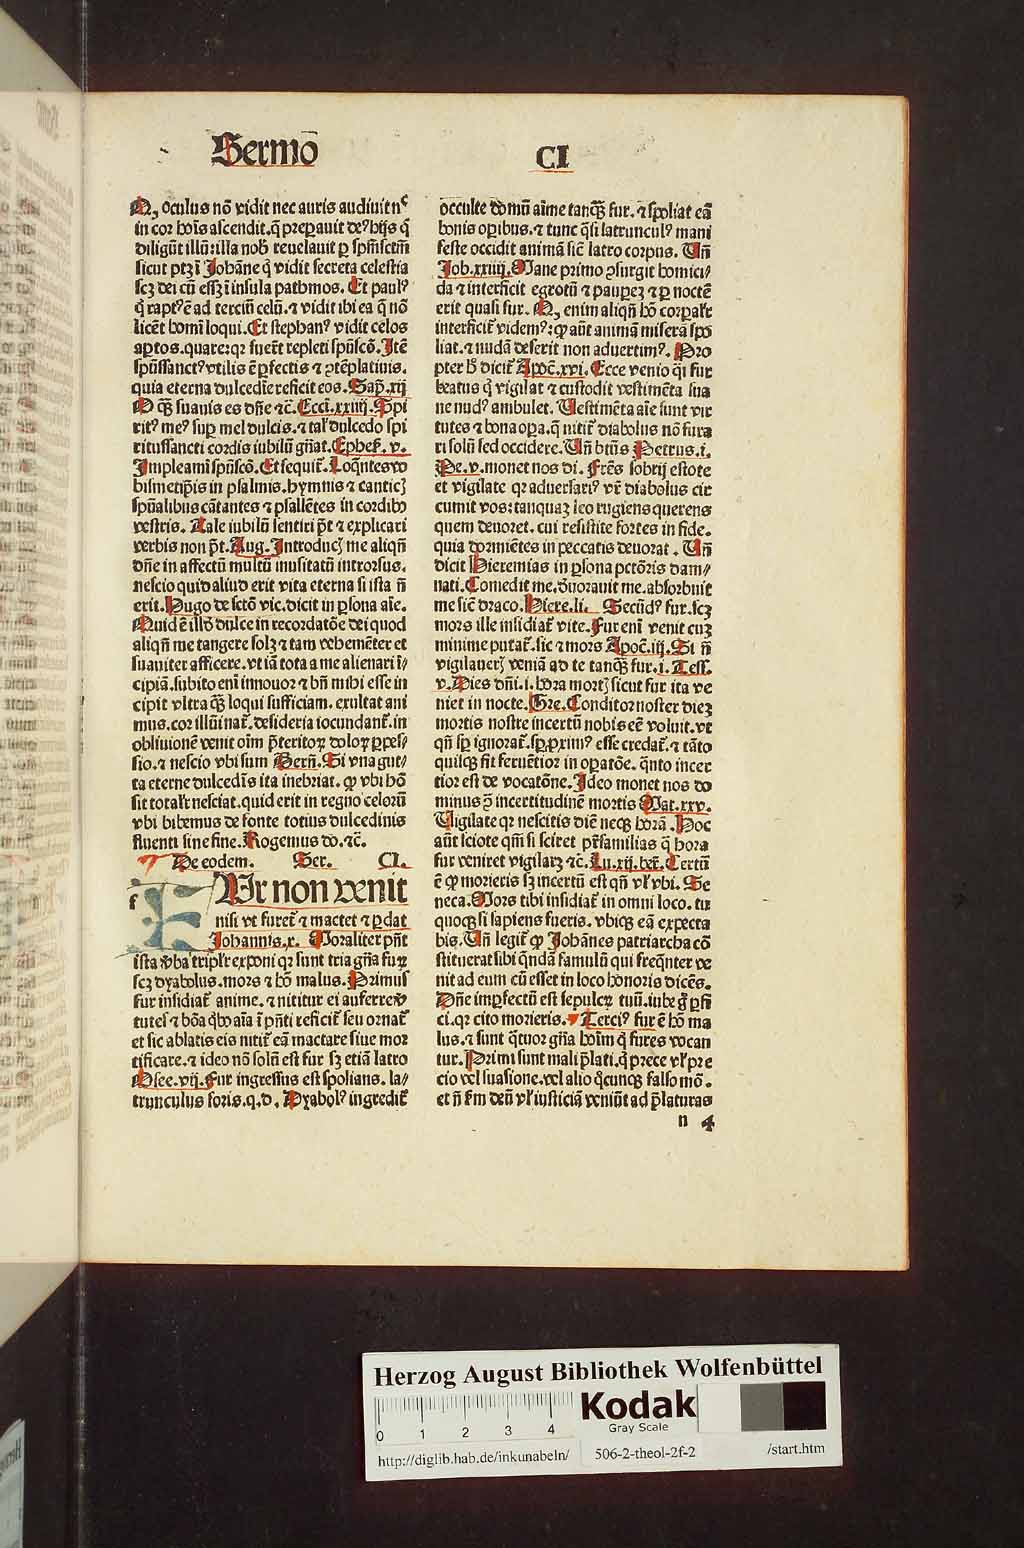 Sermō CI
Q, oculus nō vidit nec auris audiuit nᶜ
in cor hoīs ascendit. q̄ preparauit deꝰ hijs q̇
diligūt illū: illa nob̄ reuelauit ꝑ spm̄sctm̄
sicut ptꝫ ī Johāne q̇ vidit secreta celestia
scꝫ dei cū essꝫ ī insula pathmos. Et paulꝰ
q̇ raptꝰ ē ad terciū celū. ⁊ vidit ibi ea q̄ nō
licēt homī loqui. Et stephanꝰ vidit celos
aꝑtos. quare: qꝛ fuer̄t repleti spūscō. Itē
spūssanctꝰ vtilis ē ꝑfectis ⁊ ꝯtēplatiuis.
quia eterna dulcedīe reficit eos. Sap̄. xij
O qꝫ̄ suauis es dn̄e ⁊c̄. Eccī. xxiiij. Spi
ritꝰ meꝰ suꝑ mel dulcis. ⁊ tal' dulcedo spi
ritussancti cordis iubilū gn̄at. Epheſ. v.
Impleamī spūscō. Et sequit̄. Loq̄ntes vo
bismetip̄is in psalmis. hymnis ⁊ canticꝭ
spūalibus cātantes ⁊ psallētes in cordibꝰ
vestris. Tale iubilū sentiri p̄t ⁊ explicari
verbis non p̄t. Aug. Introducꝭ me aliqn̄
dn̄e in affectū multū inusitatū introrsus.
nescio quid aliud erit vita eterna si ista n̄
erit. Hugo de sctō vic. dicit in ꝑsona aīe.
Quid ē illd̄ dulce in recordatōe dei quod
aliqn̄ me tangere solꝫ ⁊ tam vehemēter et
suauiter afficere. vt iā tota a me alienari ī-
cipiā. subito enī innouor ⁊ bn̄ mihi esse in
cipit vltra qꝫ̄ loqui sufficiam. exultat ani
mus. cor illūinat̄. desideria iocundant̄. in
obliuionē venit oīm p̄teritoꝝ doloꝝ ꝑpes-
sio. ⁊ nescio vbi sum Bern̄. Si vna gut-
ta eterne dulcedīs ita inebriat. ꝙ vbi hō
sit total'r nesciat. quid erit in regno celorū
vbi bibemus de fonte totius dulcedinis
fluenti sine fine. Rogemus do. ⁊c̄.
De eodem. Ser. CI.
f
FUr non venit
nisi vt furet̄ ⁊ mactet ⁊ ꝑdat
Johannis. x. Moraliter pn̄t
ista v̄ba tripl'r exponi qꝛ sunt tria gn̄a fuꝝ
scꝫ dyabolus. mors ⁊ hō malus. Primus
fur insidiat̄ anime. ⁊ nititur ei auferre v̄
tutes ⁊ bōa q̇bꝰ aīa ī pn̄ti reficit̄ seu ornat̄
et sic ablatis eis nitit̄ eā mactare siue mor
tificare. ⁊ ideo nō solū est fur sꝫ etiā latro
Osee. vij. Fur ingressus est spolians. la-
trunculus foris. q. d. Dyabolꝰ ingredit̄
occulte domū aīme tanqꝫ̄ fur. ⁊ spoliat eā
bonis oꝑibus. ⁊ tunc q̄si latrunculꝰ mani
feste occidit animā sic̄ latro corpus. Un̄
Job. xxiiij. Mane primo ꝯsurgit homici-
da ⁊ interficit egrotū ⁊ pauꝑeꝫ ⁊ ꝑ noctē
erit quasi fur. Q, enim aliqn̄ hō corꝑal'r
interficit̄ videmꝰ: ꝙ aūt animā miserā spo
liat. ⁊ nudā deserit non aduertimꝰ. Pro
pter h̄ dicit̄ Apoc̄. xvi. Ecce venio q̄si fur
beatus q̇ vigilat ⁊ custodit vestimēta sua
ne nudꝰ ambulet. Uestimēta aīe sunt vir
tutes ⁊ bona oꝑa. q̄ nitit̄ diabolus nō fura
ri solū sed occidere. Un̄ btūs Petrus. i.
Pe. v. monet nos di. Fr̄es sobrij estote
et vigilate qꝛ aduersariꝰ vr̄ diabolus cir
cumit vos: tanquaꝫ leo rugiens querens
quem deuoret. cui resistite fortes in fide.
quia dormiētes in peccatis deuorat. Un̄
dicit Hieremias in ꝑsona pctōris dam-
nati. Comedit me. d̄uorauit me. absorbuit
me sic̄ draco. Hiere. li. Secūdꝰ fur. scꝫ
mors ille insidiat̄ vite. Fur enī venit cuꝫ
minime putat̄. sic ⁊ mors Apoc̄. iij. Si n̄
vigilauerꝭ veniā ad te tanqꝫ̄ fur. i. Tess.
v. Dies dn̄i. i. hora mortꝭ sicut fur ita ve
niet in nocte. Gre. Conditor noster dieꝫ
mortis nostre incertū nobis eē voluit. vt
qn̄ sꝑ ignorat̄. sꝑ ꝓximꝰ esse credat̄. ⁊ tāto
quilqꝫ fit feruētior in oꝑatōe. q̄nto incer
tior est de vocatōne. Ideo monet nos do
minus ꝓ incertitudinē mortis Mat. xxv.
Uigilate qꝛ nescitis diē neqꝫ horā. Hoc
aūt sciote qm̄ si sciret pr̄familias q̄ hora
fur veniret vigilarꝫ ⁊c̄. Lu. xij. het̄. Certū
ē ꝙ morieris sꝫ incertū est qn̄ vl' vbi. Se
neca. Mors tibi insidiat̄ in omni loco. tu
quoqꝫ si sapiens fueris. vbiqꝫ eā expecta
bis. Un̄ legit̄ ꝙ Johānes patriarcha cō
stituerat sibi q̄ndā famulū qui freq̄nter ve
nit ad eum cū esset in loco honoris dicēs.
Dn̄e imꝑfectū est sepulcꝝ tuū. iube g̊ ꝑfi
ci. qꝛ cito morieris. Terciꝰ fur ē hō ma
lus. ⁊ sunt q̄tuor gn̄a hoīm q̄ fures vocan
tur. Primi sunt mali p̄lati. q̇ prece vl' pre
cio vel suasione. vel alio q̊cunqꝫ falso mō.
et n̄ ẜm deū vl' iusticiā veniūt ad p̄laturas
n 4
Herzog August Bibliothek Wolfenbüttel
0 1 2 3 4
Kodak
Gray Scale
http://diglib.hab.de/inkunabeln/ 506-2-theol-2f-2 /start.htm